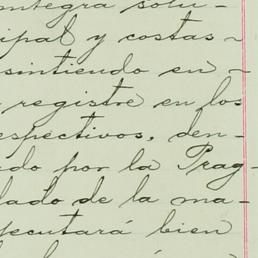 integra solu-
ipal y costas
sintiendo en-
registre en los
espectivos, den-
do por la Prag-
lado de la ma-
ecutará bien